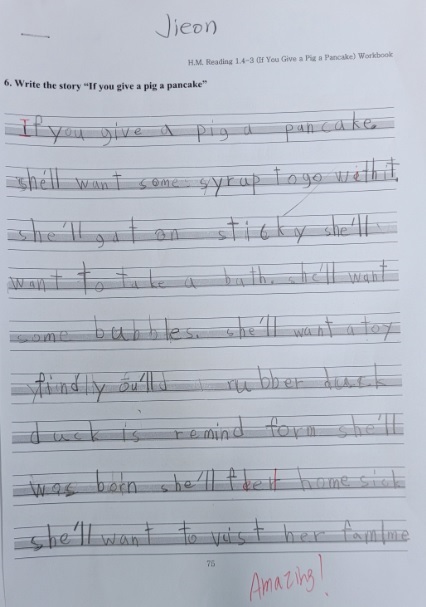 Jieon
H.M. Reading 1.4-3 (If You Give a Pig a Pancake) Workbook
6. Write the story "If you give a pig a pancake"
If you give a pig a pancake.
she'll want some syrup to go with it.
she'll gat an sticky she'll
want to take a bath. she'll want
some bubbles. she'll want a toy
rubber duck
duck is remind form she'll
was born she'll home sick
she'll want to her
75
Amazing!